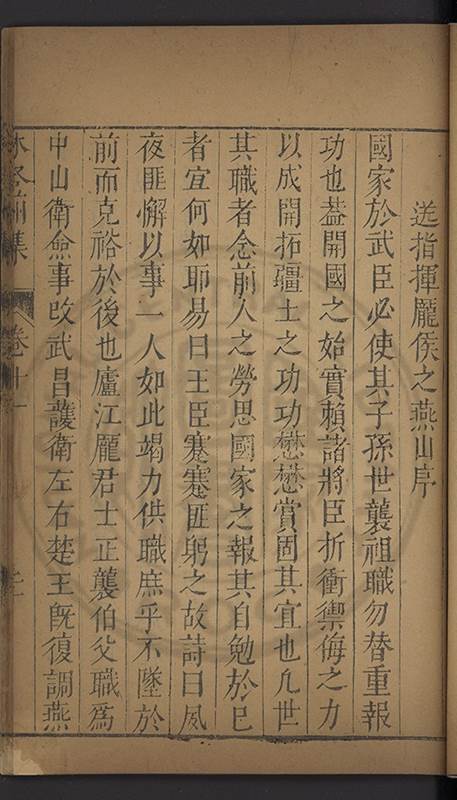 送指揮龐侯之燕山序
國家於武臣必使其子孫世襲祖職勿替重報
功也葢開國之始實賴諸將臣折衝禦侮之力
以成開拓疆土之功功懋懋賞固其宜也凡世
其職者念前人之勞思國家之報其自勉於已
者宜何如耶易曰王臣蹇蹇匪躬之故詩曰夙
夜匪懈以事一人如此竭力供職庶乎不墜於
前而克裕於後也廬江龐君士正襲伯父職爲
中山衛僉事改武昌護衛左右楚王旣復調燕
集 卷十一